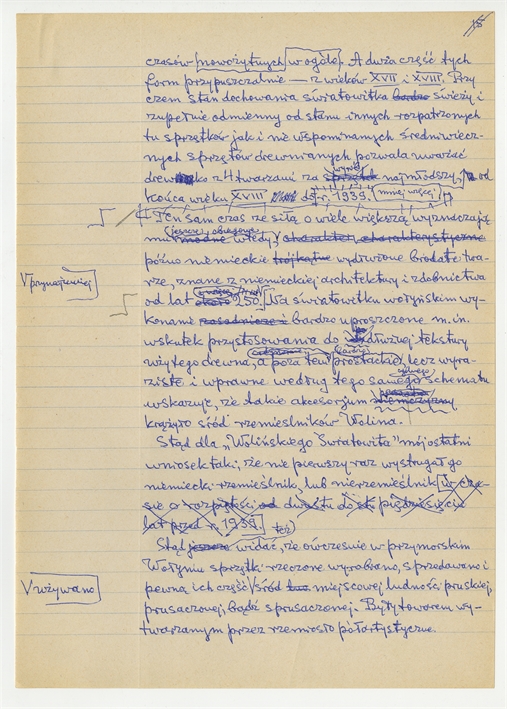 15
czasów nowożytnych w ogóle. A duża część tych
form przypuszczalnie — z wieków XVII i XVIII. Przy
czem stan dochowania światowitka bardzo świeży i
zupełnie odmienny od stanu innych rozpatrzonych
tu sprzętów jak i nie wspominanych średniowiecz-
nych sprzętów drewnianych pozwala uważać
wyrób
drewko z 4 twarzami za sprzęt najmłodszy, od
końca wieku XVIII do r. 1939. mniej więcej
Ten sam czas ze siłą o wiele większą wyznaczają
jeszcze obiegowe
mu modne wtedy, charakter charakterystyczne
późno niemieckie trójkątne wydrwione brodate twa-
V przynajmniej
rze, znane z niemieckiej architektury i zdobnictwa
od lat około 250. Na światowitku wolyńskim wy-
konane zasadniczo i bardzo uproszczone m. in.
wskutek przystosowania do dłuższej tekstury
użytego drewna, a poza tem prostackie, lecz wyra-
ziste i wprawne według tego samego schematu
wskazuje, że takie akcesorjum niemczyzny
krążyło śród rzemieślników Wolina.
Stąd dla "Wolińskiego Światowita" mój ostatni
wniosek taki, że nie pierwszy raz wystrugał go
niemiecki rzemieślnik, lub nierzemieślnik w cza-
sie o rozpiętości od dwustu do stu pięćdziesięciu
lat przed r. 1939.
też
Stąd jeszcze widać, że ówcześnie w przymorskim
Wolyniu sprzętki rzeczone wyrobano, sprzedawano i
V używano
pewną ich część śród miejscowej ludności pruskiej,
prusaczonej, bądź sprusaczonej. Były towarem wy-
twarzanym przez rzemiosło półartystyczne.